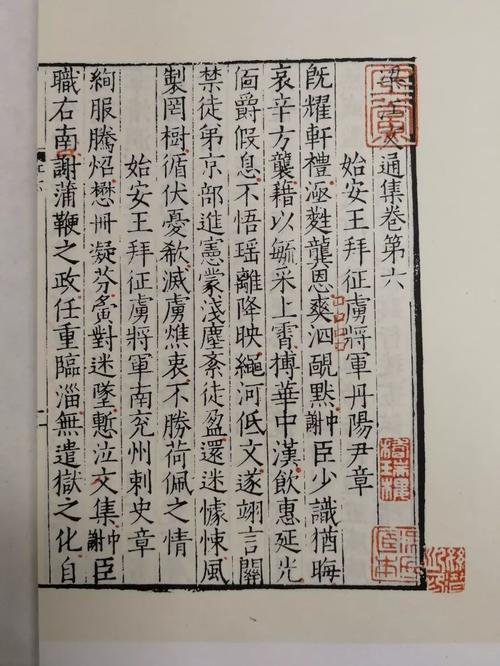 梁江文通集卷第六
始安王拜征虜將軍丹陽尹章
旣耀軒禮龔恩爽泗靦黙中謝臣少識猶晦
哀辛方襲藉以毓采上霄摶華中漢飲惠延光
爵假息不悟瑶離降映繩河低文遂翊言關
禁徒苐京部進憲蒙淺塵紊徒盈還迷懅悚風
製罔樹循伏憂欷滅虜燋衷不勝荷佩之情
始安王拜征虜將軍南兖州刺史章
絢服騰炤懋冊凝芬夤對迷墜慙泣文集中謝臣
職右南謝蒲鞭之政任重臨淄無遣獄之化自